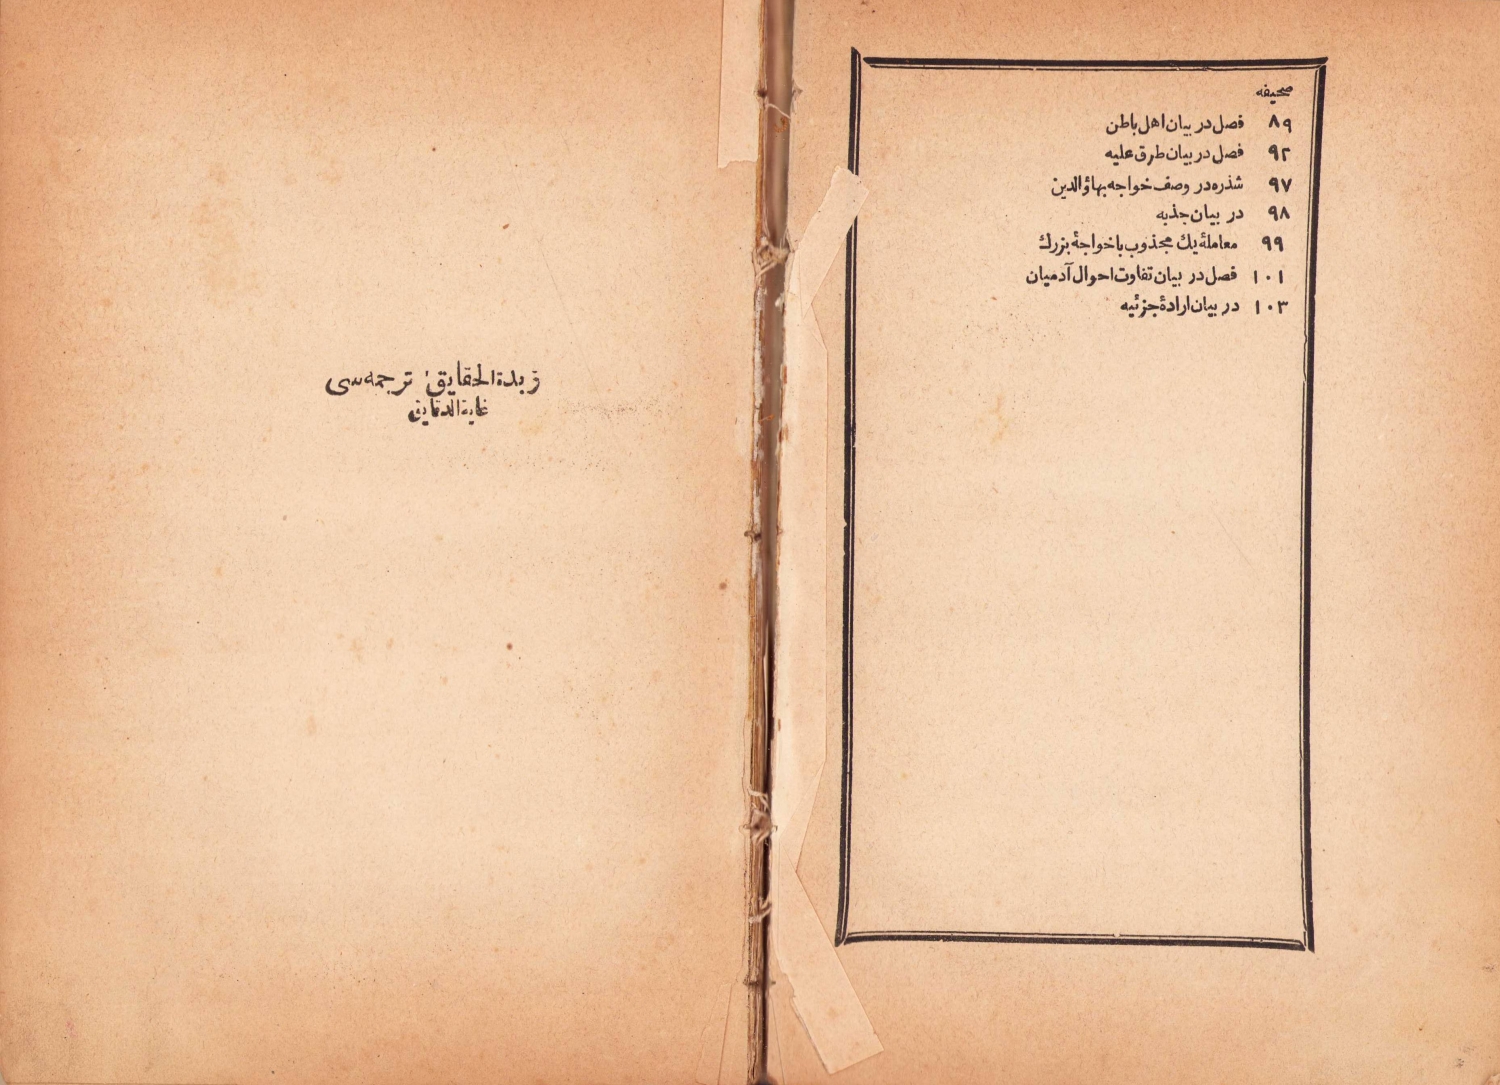 صحیفه
٨٩ فصل در بیان اهل باطن
٩٢ فصل در بیان طرق علیه
٩٧ شذره در وصف خواجه بهاؤالدین
٩٨ در بیان جذبه
٩٩ معاملهٔ یك مجذوب با خواجهٔ بزرك
١٠١ فصل در بیان تفاوت احوال آدمیان
١٠٣ در بیان ارادهٔ جزئیه
زبدة الحقایق ترجمه سی
غایة الدقایق